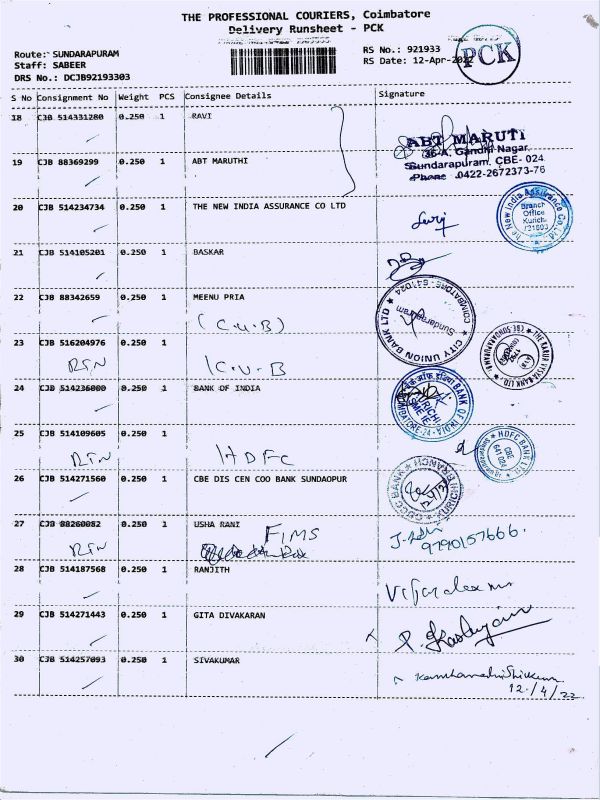 THE PROFESSIONAL COURIERS, Coimbatore
Delivery Runsheet - PCK
Route: SUNDARAPURAM
Staff: SABEER
DRS No.: DCJB92193303
RS No.: 921933
RS Date: 12-Apr-2022
PCK
S No Consignment No Weight PCS Consignee Details Signature
18 CJB 514331280 0.250 1 RAVI
ABT MARUTI
36-A, Gandhi Nagar,
Sundarapuram, CBE- 024
Phone .0422-2672373-76
19 CJB 88369299 0.250 1 ABT MARUTHI
20 CJB 514234734 0.250 1 THE NEW INDIA ASSURANCE CO LTD
The New India Assurance Co. Ltd.
Branch
Office
Kurichi
721603
21 CJB 514105201 0.250 1 BASKAR
22 CJB 88342659 0.250 1 MEENU PRIA
(C.U.B)
CITY UNION BANK LTD
COIMBATORE - 641024
Sundarapuram
23 CJB 514204976 0.250 1
RTN
(C.U.B
THE KARUR VYSYA BANK LTD.
24 CJB 514236000 0.250 1 BANK OF INDIA
BANK OF INDIA
KURICHI
25 CJB 514109605 0.250 1
RTN
HDFC
HDFC BANK LTD
CBE
641 024
26 CJB 514271560 0.250 1 CBE DIS CEN COO BANK SUNDAOPUR
KURICHI BRANCH
27 CJB 88260082 0.250 1 USHA RANI
RTN
FIMS
9790157666.
28 CJB 514187568 0.250 1 RANJITH
29 CJB 514271443 0.250 1 GITA DIVAKARAN
30 CJB 514257093 0.250 1 SIVAKUMAR
12/4/22